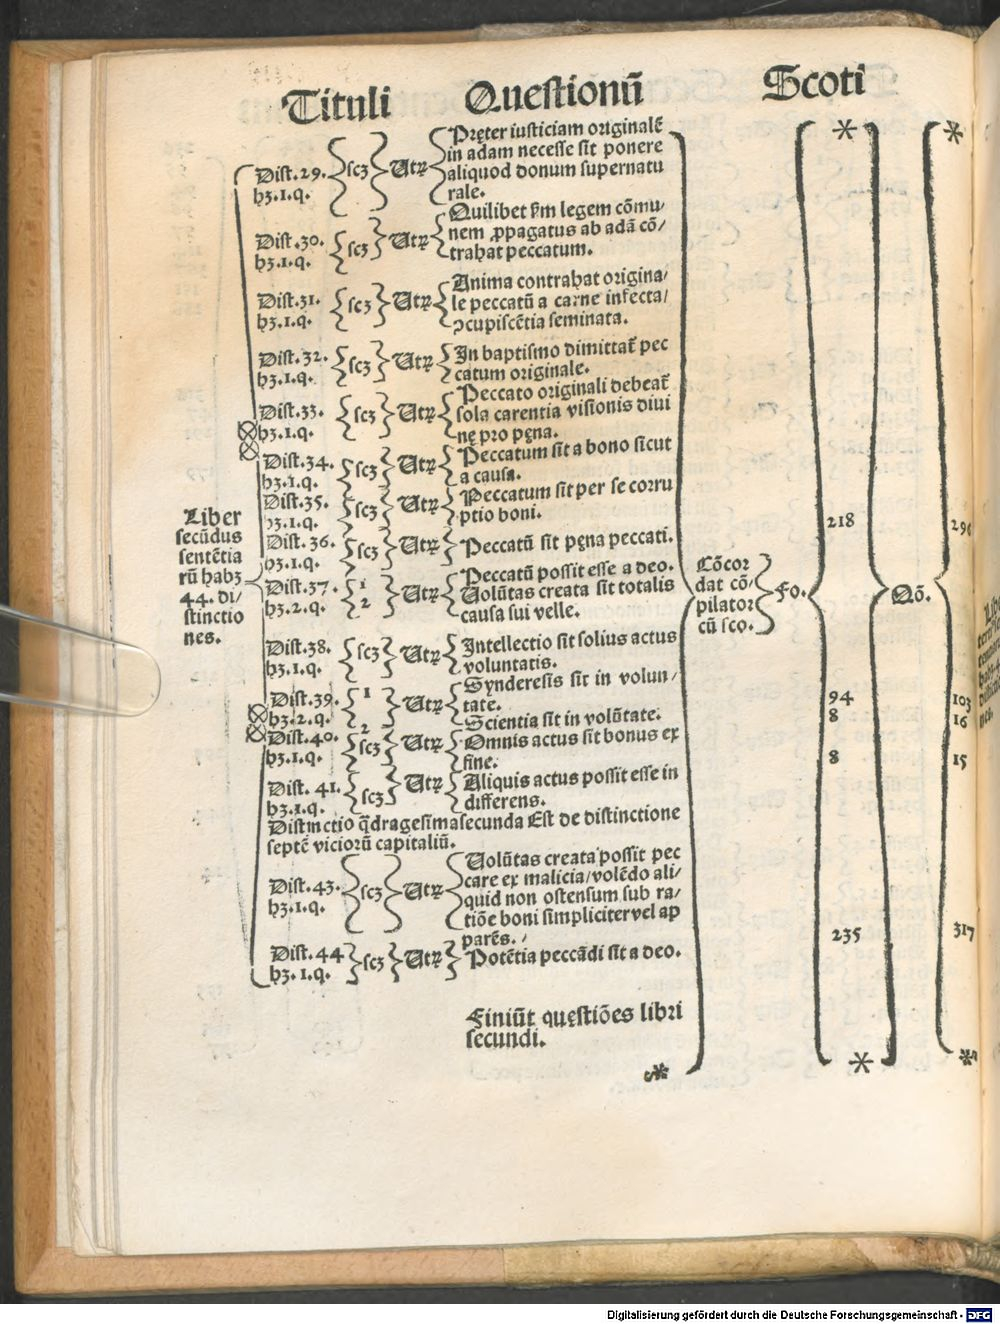 Tituli Questionũ Scoti
Liber
secũdus
sentẽtia
rũ habꝫ
44. di/
stinctio
nes.
Dist.29.
hꝫ.1.q.
scꝫ
Utꝝ
Pręter iusticiam originalẽ
in adam necesse sit ponere
aliquod donum supernatu
rale.
Dist.30.
hꝫ.1.q.
scꝫ
Utꝝ
Quilibet legem cõmu/
nem ꝓpagatus ab adã cõ/
trahat peccatum.
Dist.31.
hꝫ.1.q.
scꝫ
Utꝝ
Anima contrahat origina/
le peccatũ a carne infecta/
ꝯcupiscẽtia seminata.
Dist.32.
hꝫ.1.q.
scꝫ
Utꝝ
In baptismo dimittat̃ pec
catum originale.
Dist.33.
hꝫ.1.q.
scꝫ
Utꝝ
Peccato originali debeat̃
sola carentia visionis diui
nę pro pęna.
Dist.34.
hꝫ.1.q.
scꝫ
Utꝝ
Peccatum sit a bono sicut
a causa.
Dist.35.
hꝫ.1.q.
scꝫ
Utꝝ
Peccatum sit per se corru
ptio boni.
Dist.36.
hꝫ.1.q.
scꝫ
Utꝝ
Peccatũ sit pęna peccati.
Dist.37.
hꝫ.2.q.
1
2
Utꝝ
Peccatũ possit esse a deo.
Uolũtas creata sit totalis
causa sui velle.
Dist.38.
hꝫ.1.q.
scꝫ
Utꝝ
Intellectio sit solius actus
voluntatis.
Dist.39.
hꝫ.2.q.
1
2
Utꝝ
Synderesis sit in volun/
tate.
Scientia sit in volũtate.
Dist.40.
hꝫ.1.q.
scꝫ
Utꝝ
Omnis actus sit bonus ex
fine.
Dist. 41.
hꝫ.1.q.
scꝫ
Utꝝ
Aliquis actus possit esse in
differens.
Distinctio q̃dragesimasecunda Est de distinctione
septẽ viciorũ capitaliũ.
Dist.43.
hꝫ.1.q.
scꝫ
Utꝝ
Uolũtas creata possit pec
care ex malicia/volẽdo ali/
quid non ostensum sub ra/
tiõe boni simplicitervel ap
parẽs./
Dist.44
hꝫ.1.q.
scꝫ
Utꝝ
Potẽtia peccãdi sit a deo.
Finiũt quęstiões libri
secundi.
Cõcor
dat cõ/
pilator
cũ sco.
Fo.
218
94
8
8
235
Qõ.
296
103
16
15
317
Digitalisierung gefördert durch die Deutsche Forschungsgemeinschaft - DFG